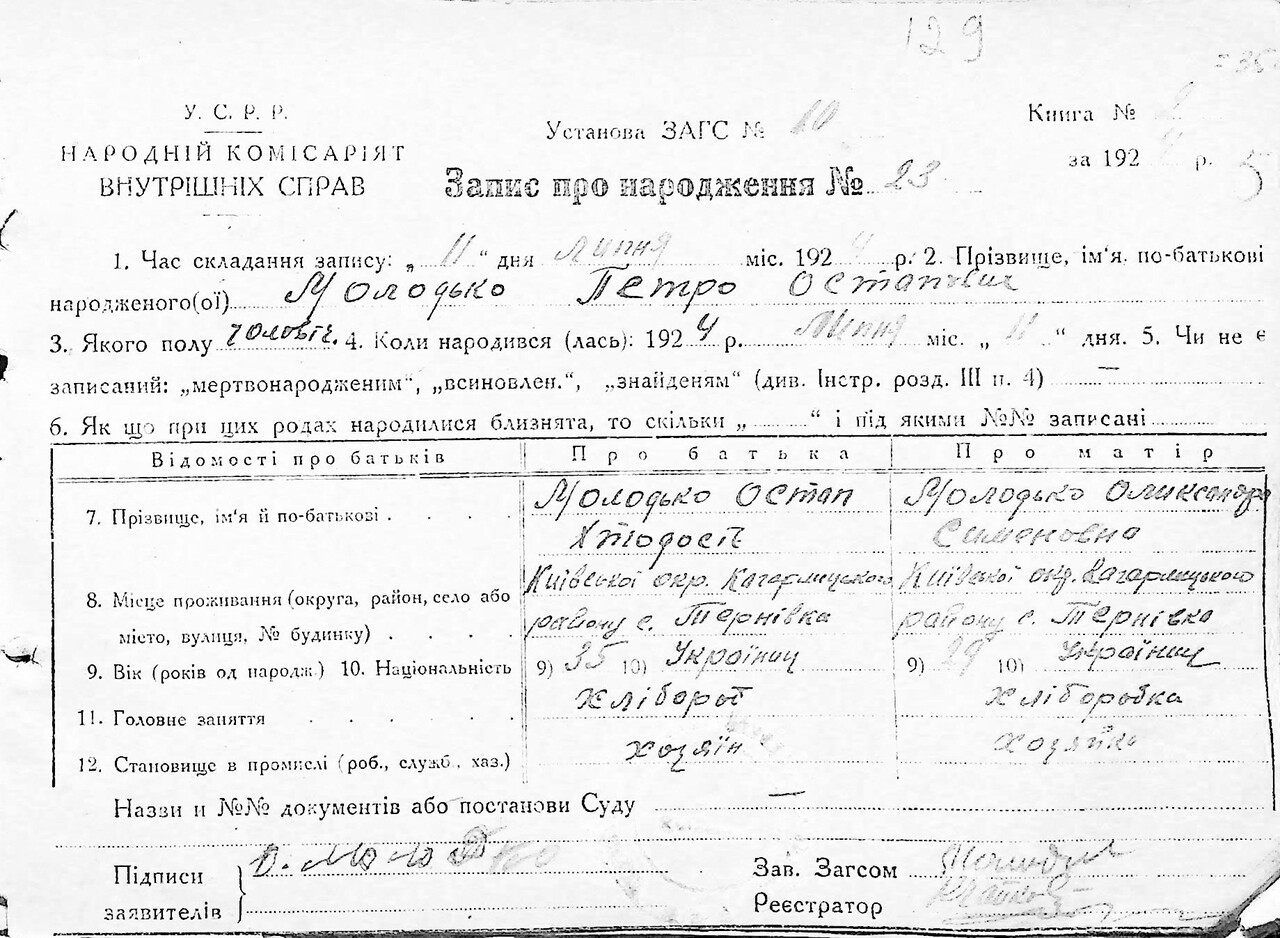 129
У. С. Р. Р.
НАРОДНІЙ КОМІСАРІЯТ
ВНУТРІШНІХ СПРАВ
Установа ЗАГС № 10
Книга №
за 192 р. 5
Запис про народження № 23
1. Час складання запису: „ 11 “ дня липня міс. 1924 р. 2. Прізвище, ім'я, по-батькові
народженого(ої) Молодько Петро Остапович
3. Якого полу чоловіч. 4. Коли народився (лась): 1924 р. Липня міс. „ 11 “ дня. 5. Чи не є
записаний: „мертвонародженим“, „всиновлен.“, „знайденям“ (див. Інстр. розд. III п. 4) —
6. Як що при цих родах народилися близнята, то скільки „ “ і під якими №№ записані
Відомості про батьків Про батька Про матір
7. Прізвище, ім'я й по-батькові Молодько Остап Молодько Оликсандра
Хтодосів Сименовна
8. Місце проживання (округа, район, село або Київської окр. Кагарлицького Київської окр. Кагарлицького
місто, вулиця, № будинку) району с. Тернівка району с. Тернівка
9. Вік (років од народж.) 10. Національність 9) 35 10) Українец 9) 29 10) Українец
11. Головне заняття Хлібороб Хліборобка
12. Становище в промислі (роб., служб., хаз.) Хозяїн Хозяйка
Назви и №№ документів або постанови Суду —
Підписи
заявителів
Зав. Загсом
Реєстратор